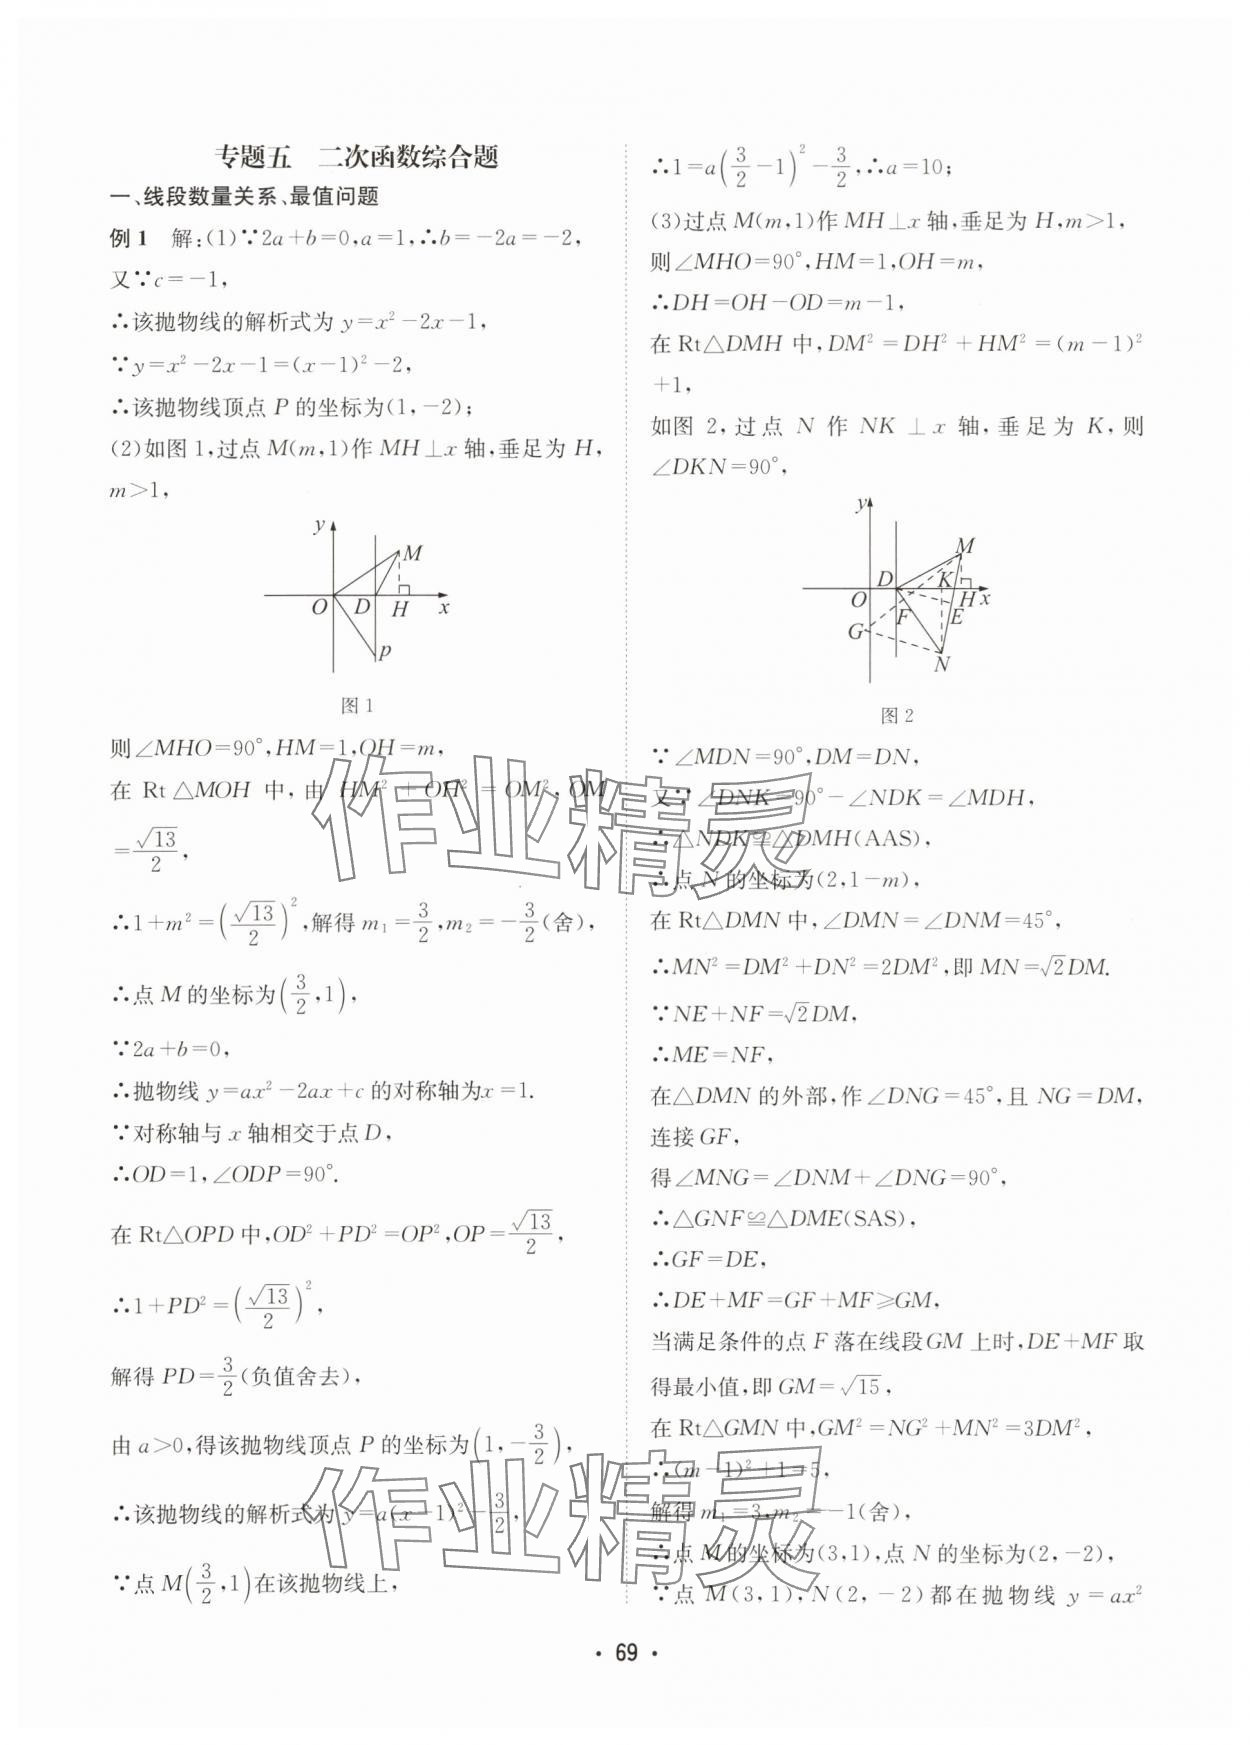 专题五　二次函数综合题
一、线段数量关系、最值问题
例 1　解:(1)∵2a+b=0,a=1,∴b=-2a=-2,
又∵c=-1,
∴该抛物线的解析式为 y=x²-2x-1,
∵y=x²-2x-1=(x-1)²-2,
∴该抛物线顶点 P 的坐标为(1,-2);
(2)如图 1,过点 M(m,1)作 MH⊥x 轴,垂足为 H,
m>1,
y
M
O D H x
P
图 1
则∠MHO=90°,HM=1,OH=m,
在 Rt△MOH 中,由 HM²+OH²=OM²,OM
=√13/2,
∴1+m²=(√13/2)²,解得 m₁=3/2,m₂=-3/2(舍),
∴点 M 的坐标为(3/2,1),
∵2a+b=0,
∴抛物线 y=ax²-2ax+c 的对称轴为x=1.
∵对称轴与 x 轴相交于点 D,
∴OD=1,∠ODP=90°.
在 Rt△OPD 中,OD²+PD²=OP²,OP=√13/2,
∴1+PD²=(√13/2)²,
解得 PD=3/2(负值舍去),
由 a>0,得该抛物线顶点 P 的坐标为(1,-3/2),
∴该抛物线的解析式为 y=a(x-1)²-3/2,
∵点 M(3/2,1)在该抛物线上,
∴1=a(3/2-1)²-3/2,∴a=10;
(3)过点 M(m,1)作 MH⊥x 轴,垂足为 H,m>1,
则∠MHO=90°,HM=1,OH=m,
∴DH=OH-OD=m-1,
在 Rt△DMH 中,DM²=DH²+HM²=(m-1)²
+1,
如图 2,过点 N 作 NK⊥x 轴,垂足为 K,则
∠DKN=90°,
y
M
D K
O F H x
G E
N
图 2
∵∠MDN=90°,DM=DN,
又∵∠DNK=90°-∠NDK=∠MDH,
∴△NDK≌△DMH(AAS),
∴点 N 的坐标为(2,1-m),
在 Rt△DMN 中,∠DMN=∠DNM=45°,
∴MN²=DM²+DN²=2DM²,即 MN=√2DM.
∵NE+NF=√2DM,
∴ME=NF,
在△DMN 的外部,作∠DNG=45°,且 NG=DM,
连接 GF,
得∠MNG=∠DNM+∠DNG=90°,
∴△GNF≌△DME(SAS),
∴GF=DE,
∴DE+MF=GF+MF≥GM,
当满足条件的点 F 落在线段GM 上时,DE+MF 取
得最小值,即 GM=√15,
在 Rt△GMN 中,GM²=NG²+MN²=3DM²,
∴(m-1)²+1=5,
解得 m₁=3,m₂=-1(舍),
∴点 M 的坐标为(3,1),点 N 的坐标为(2,-2),
∵点 M(3,1),N(2,-2)都在抛物线 y=ax²
作业精灵
作业精灵
· 69 ·